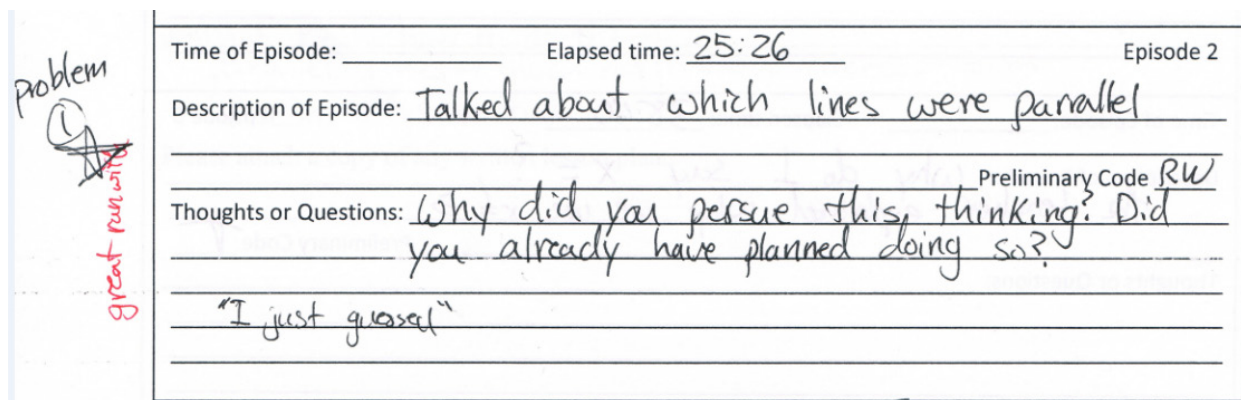 problem
1
great ran with
Time of Episode: Elapsed time: 25:26 Episode 2
Description of Episode: Talked about which lines were parrallel
Preliminary Code RW
Thoughts or Questions: Why did you persue this thinking? Did
you already have planned doing so?
"I just guessed"